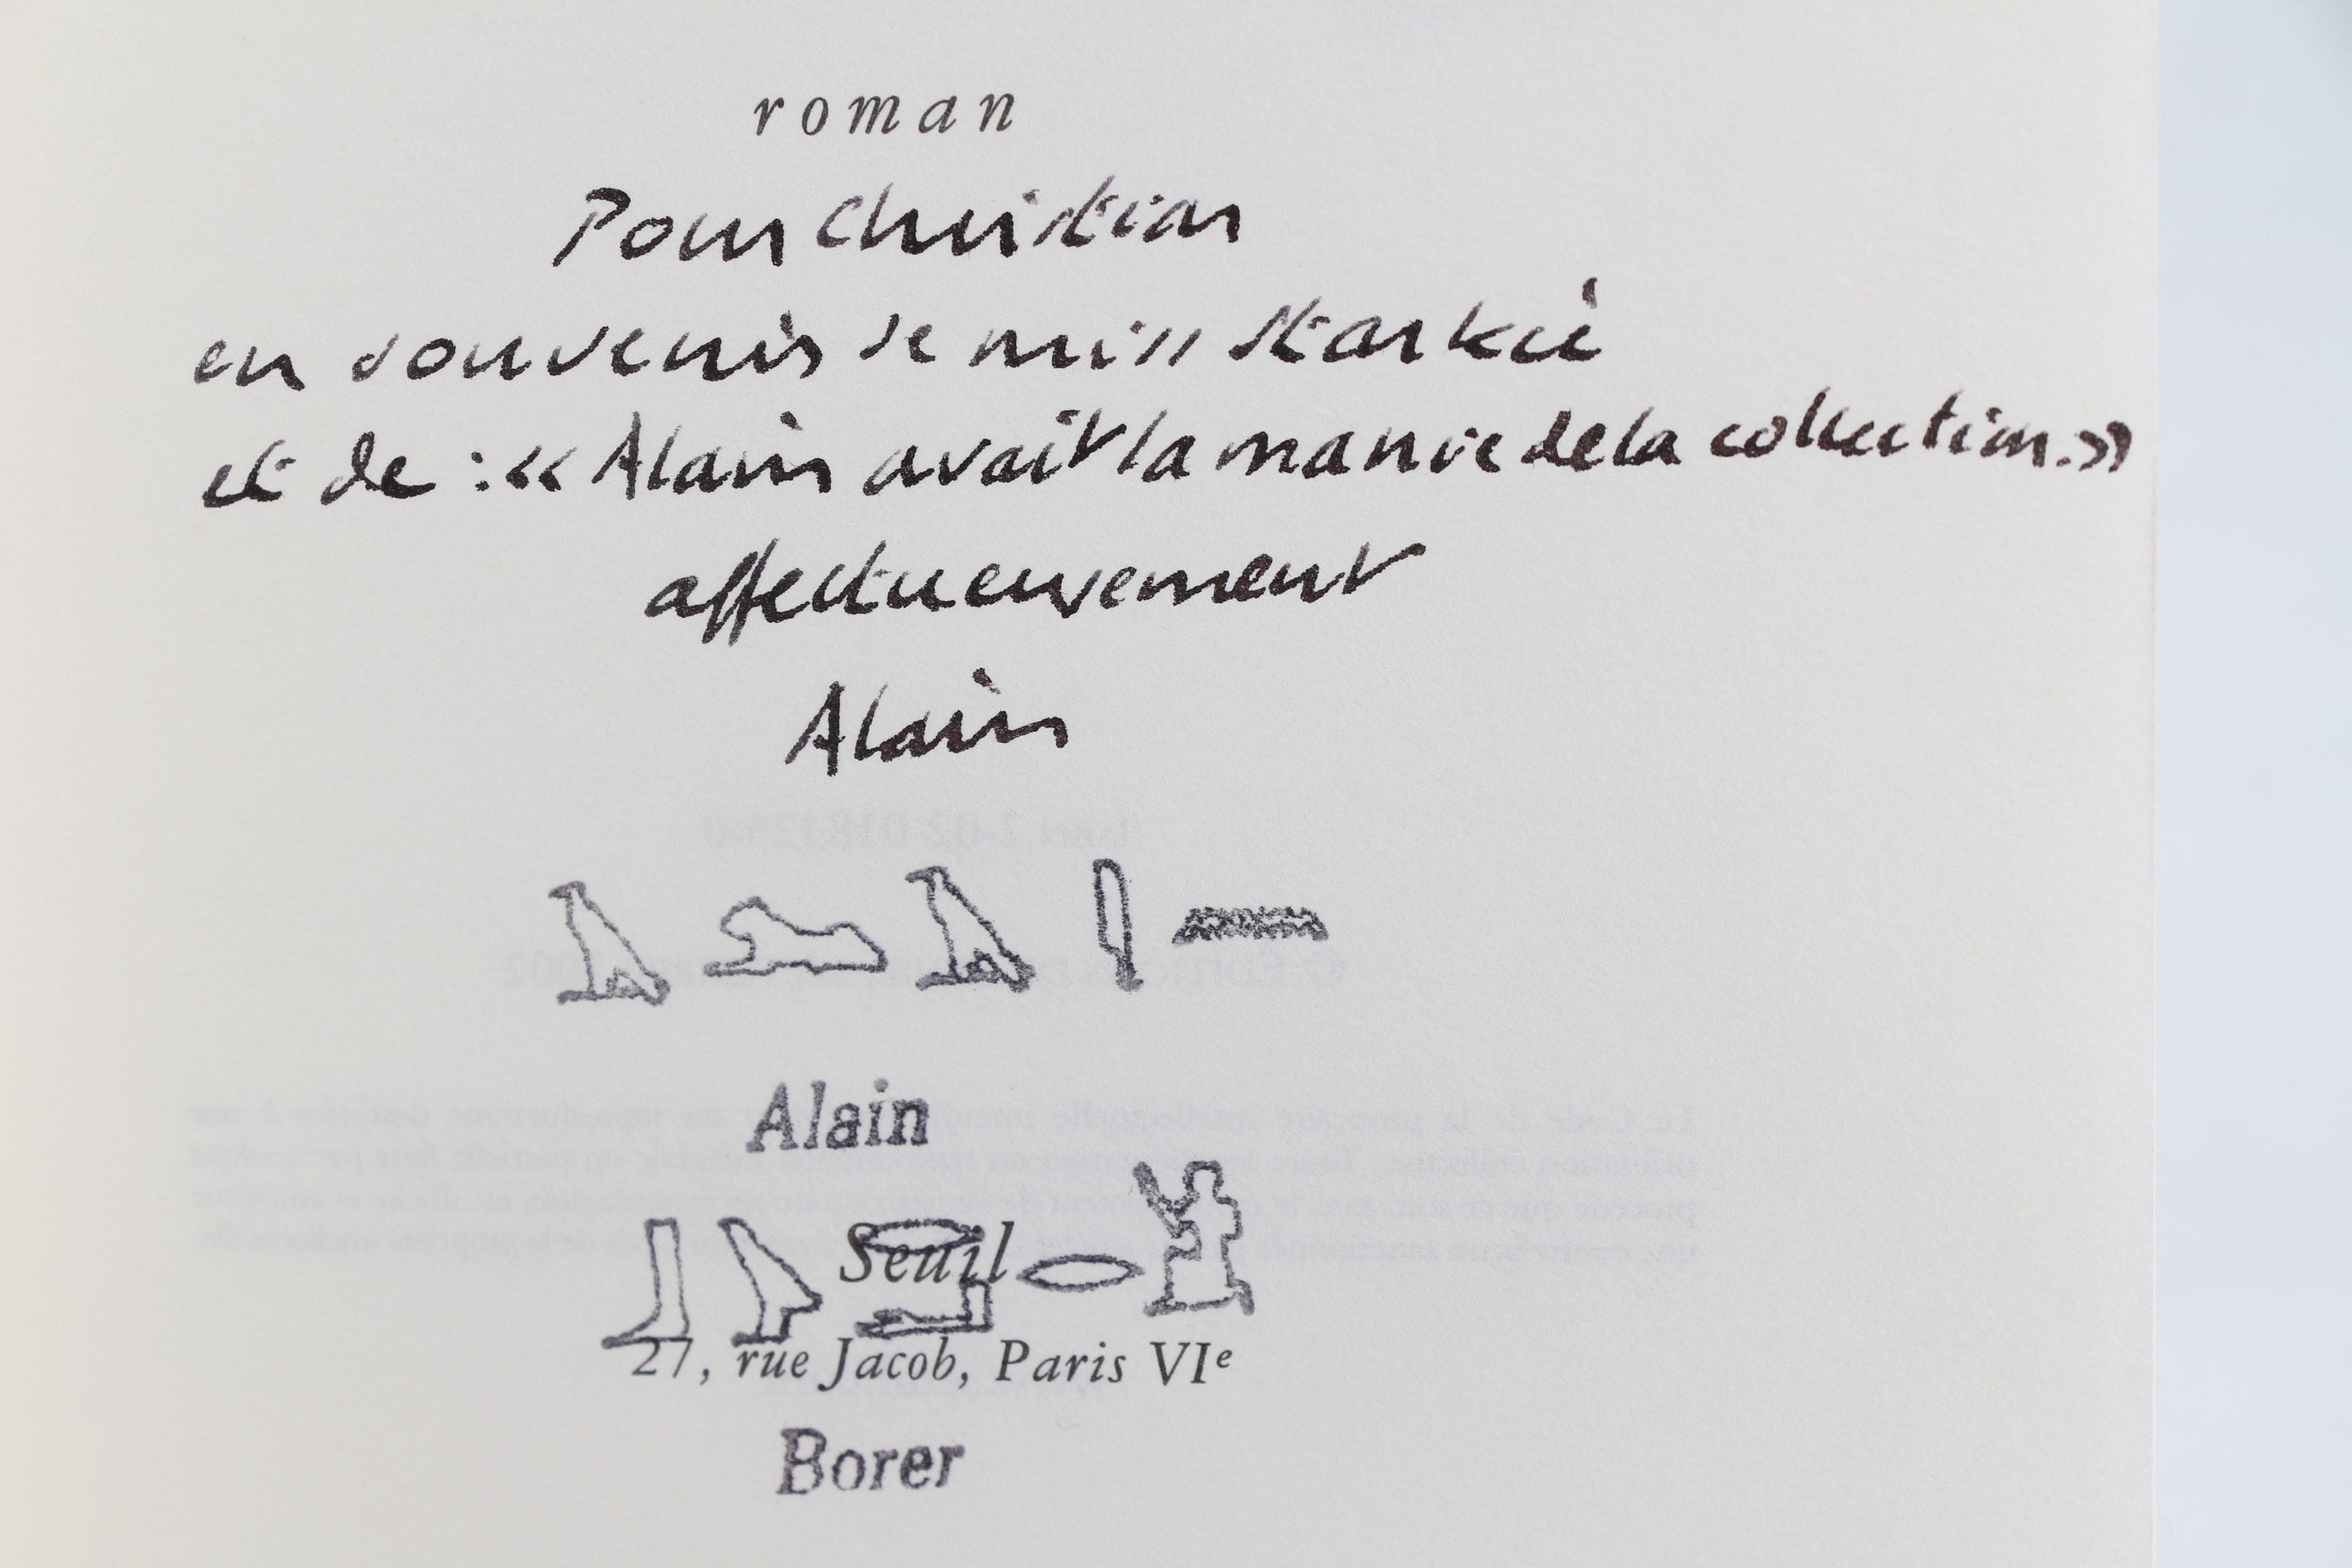 roman
Pour Christian
en souvenir de miss Starkie
et de : « Alain avait la manie de la collection. »
affectueusement
Alain
Alain
Seuil
27, rue Jacob, Paris VIe
Borer